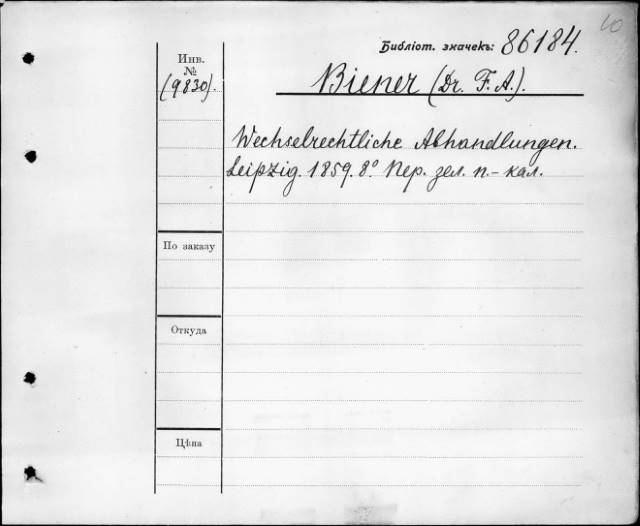 10
Библіот. значекъ: 86184.
Инв.
№
(9830).
Biener (Dr. F. A.).
Wechselrechtliche Abhandlungen.
Leipzig. 1859. 8º Пер. зел. п.- кал.
По заказу
Откуда
Цѣна